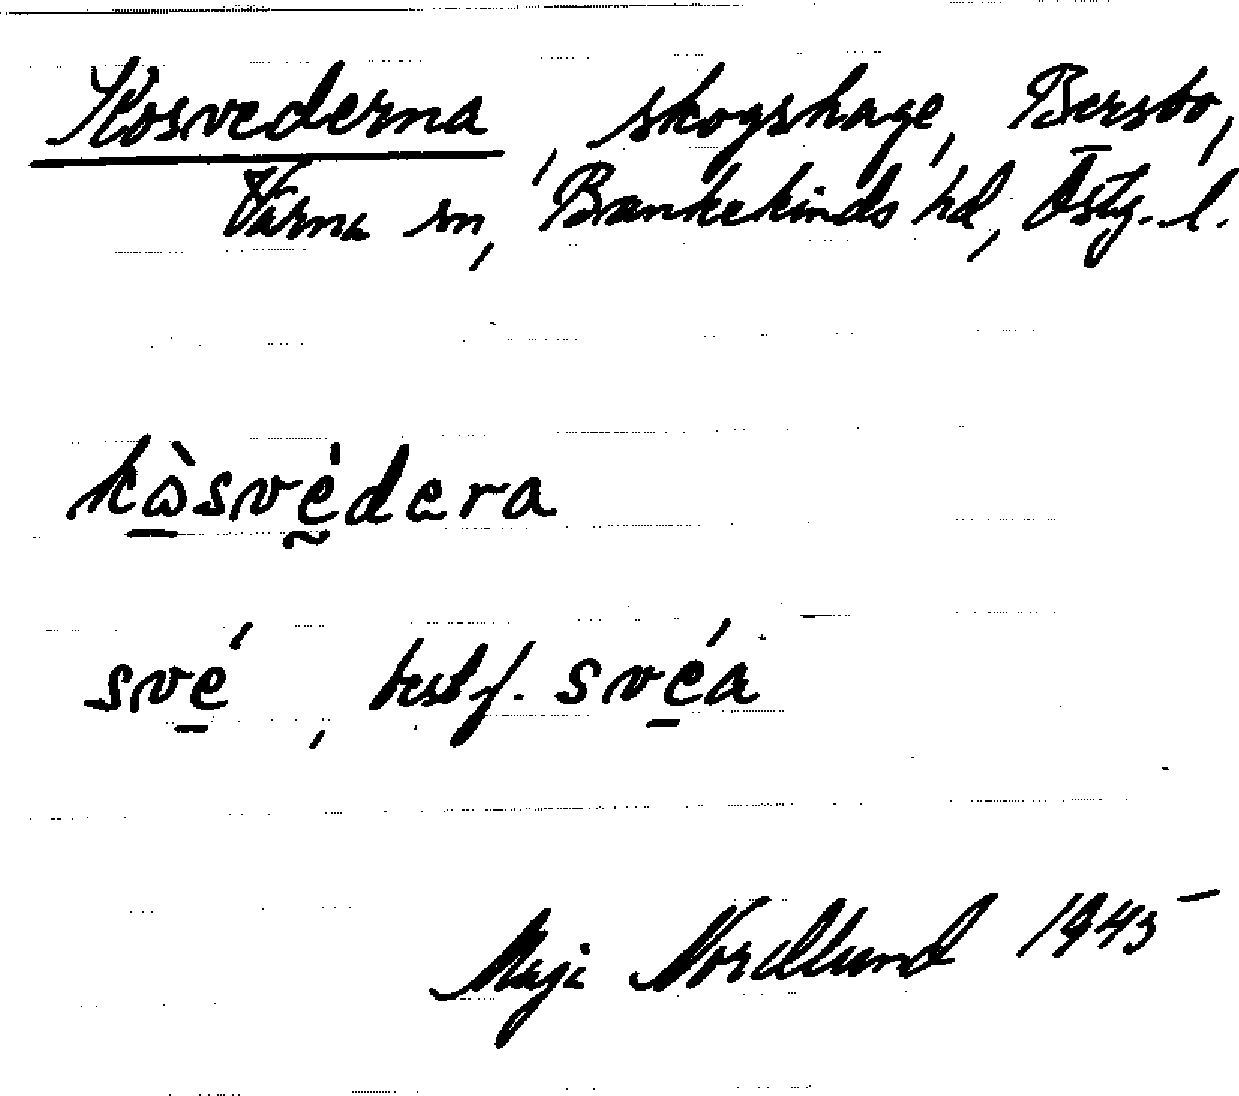 Kosvederna, skogshage, Bersbo,
Värna sn, Bankekinds hd, Östg. l.
kὼsvédera
své, best f. svéa
Maja Nordlund 1945